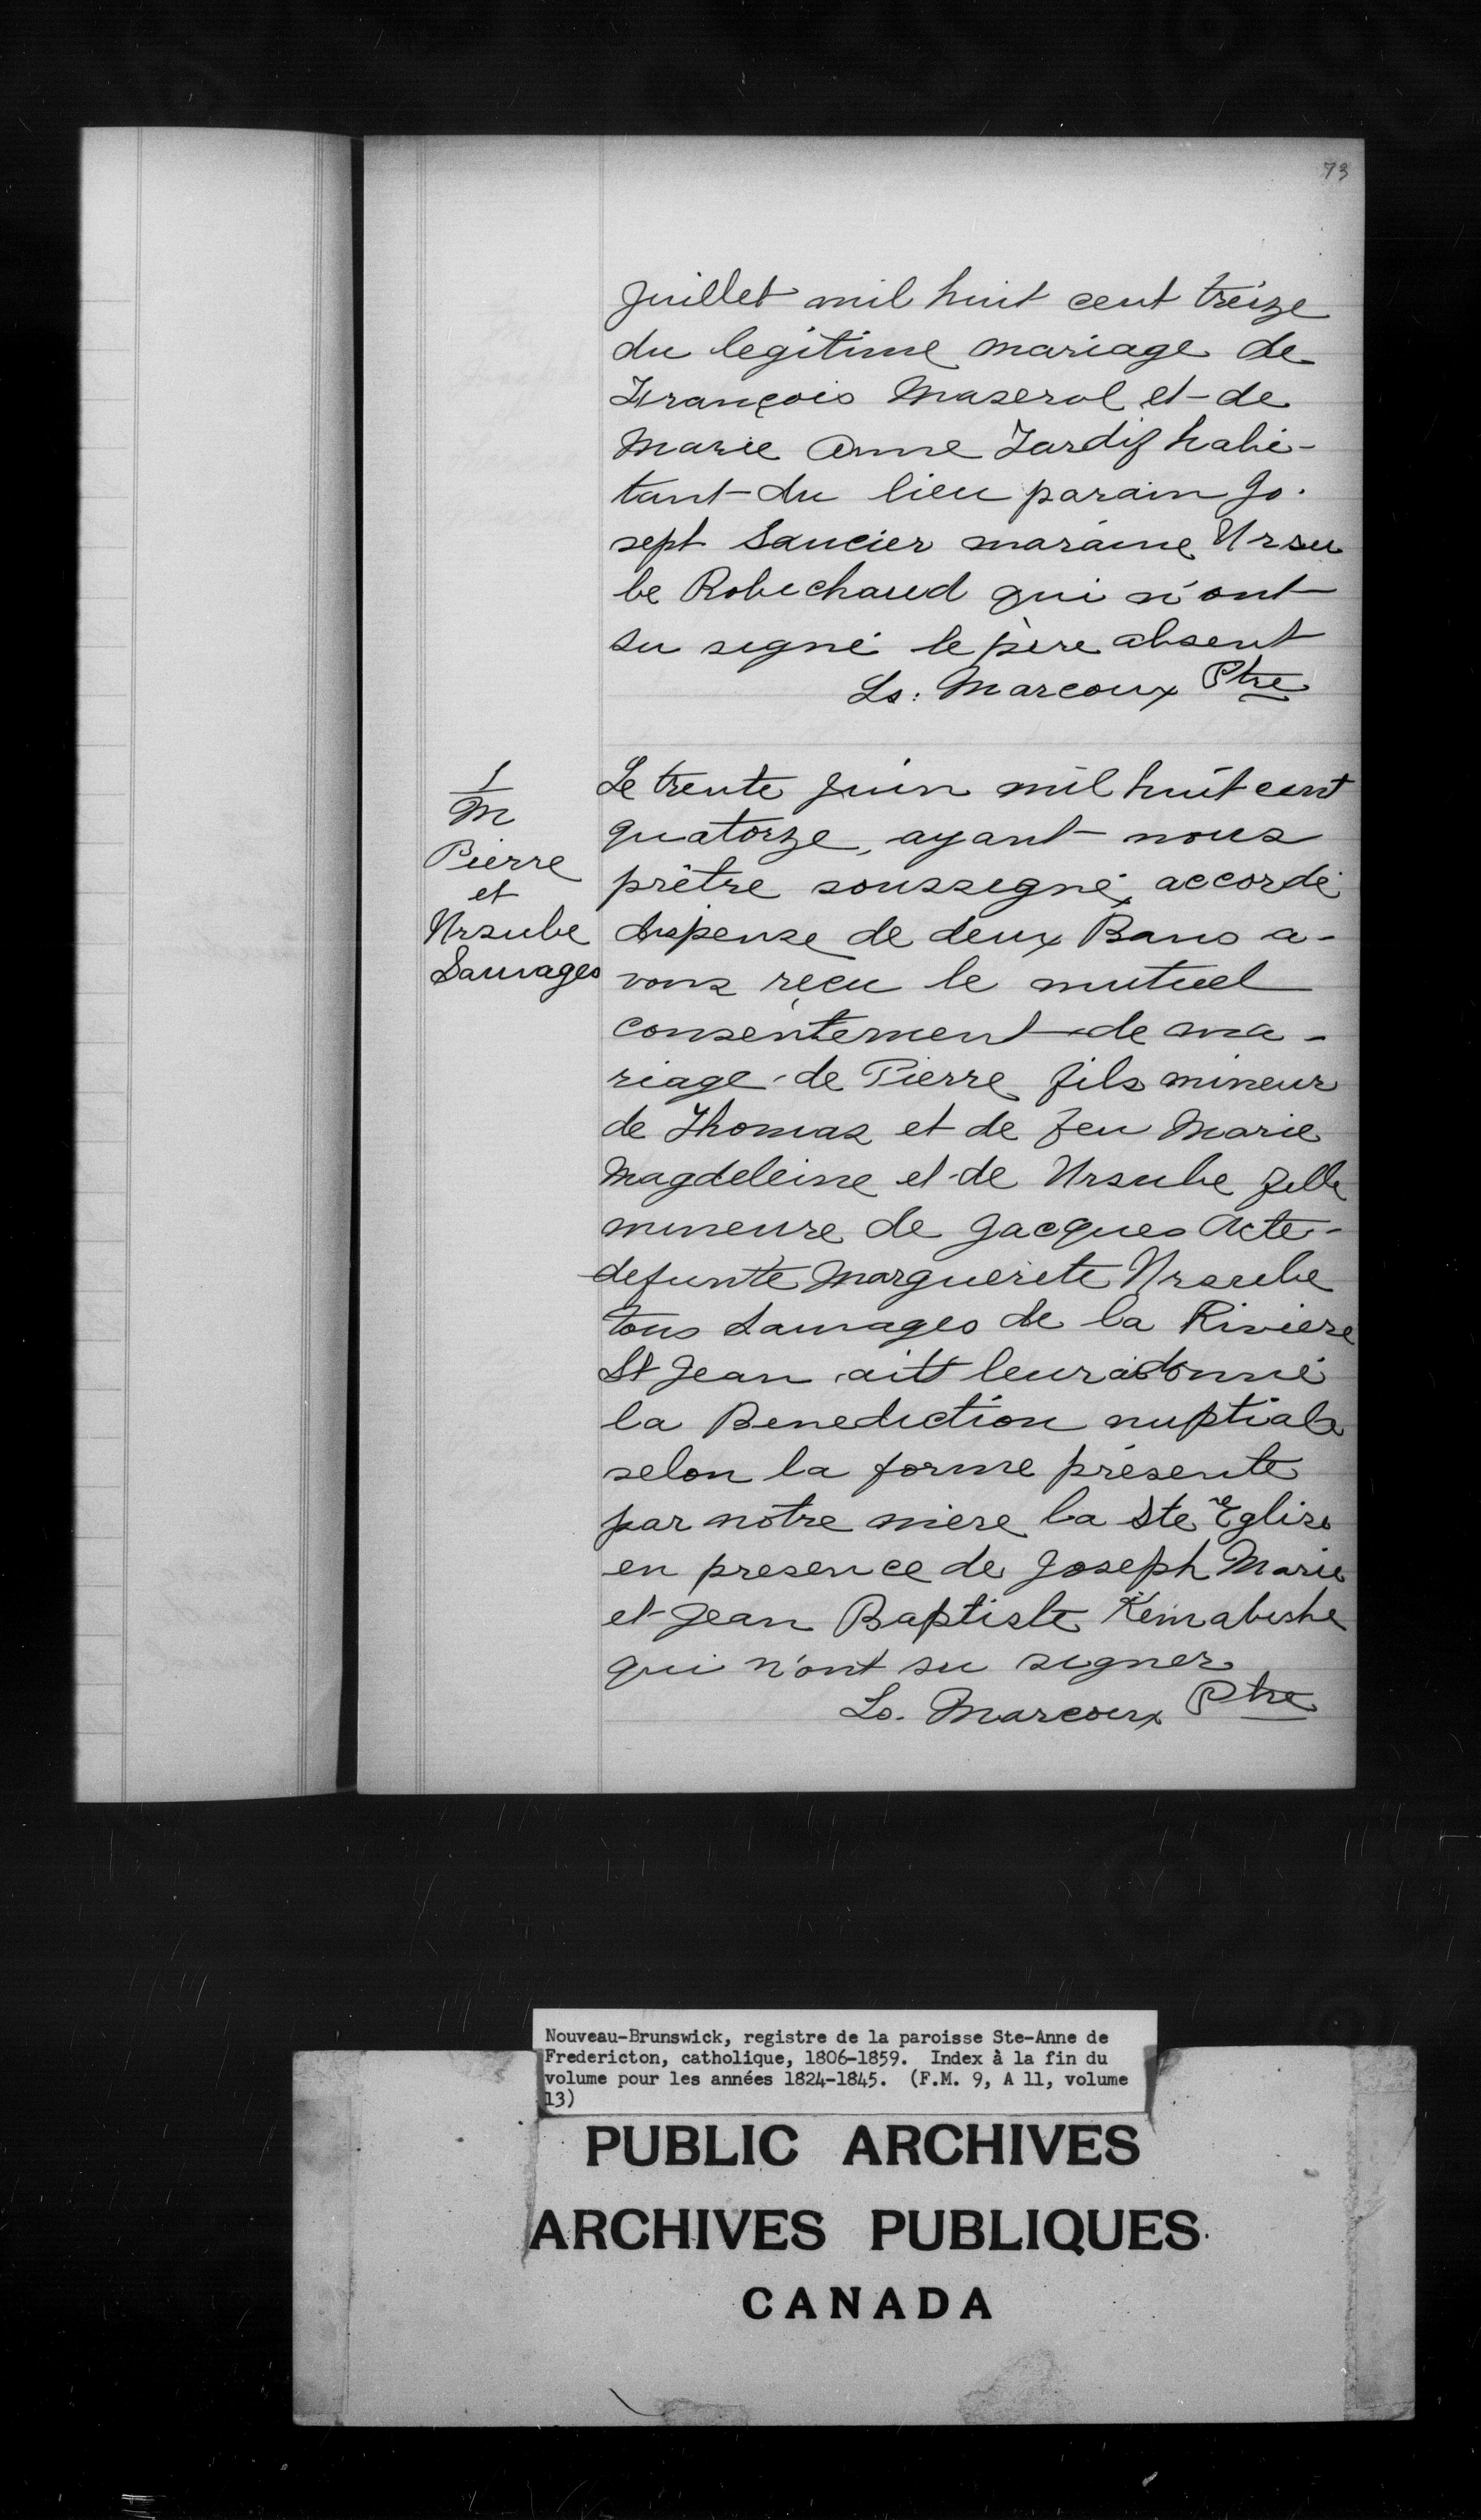 73
juillet mil huit cent treize
du legitime mariage de
François Maserol et de
Marie Anne Tardif habi-
tant du lieu parain Jo.
sept Saucier maraine Ursu
le Robichaud qui n'ont
su signé le père absent
Ls: Marcoux Ptre
1
M
Pierre
et
Ursule
Sauvages
Le trente juin mil huit cent
quatorze, ayant nous
prêtre soussigné accordé
dispense de deux Bans a-
vons reçu le mutuel
consentement de ma-
riage de Pierre fils mineur
de Thomas et de feu Marie
Magdeleine et de Ursule fille
mineure de Jacques
defunte Marguerite Ursule
tous Sauvages de la Riviere
St Jean leur donné
la Benediction nuptiale
selon la forme présente
par notre mère la Ste Eglise
en presence de Joseph Marie
et Jean Baptiste
qui n'ont su signer
Ls. Marcoux Ptre
Nouveau-Brunswick, registre de la paroisse Ste-Anne de
Fredericton, catholique, 1806-1859. Index à la fin du
volume pour les années 1824-1845. (F.M. 9, A 11, volume
13)
PUBLIC ARCHIVES
ARCHIVES PUBLIQUES
CANADA